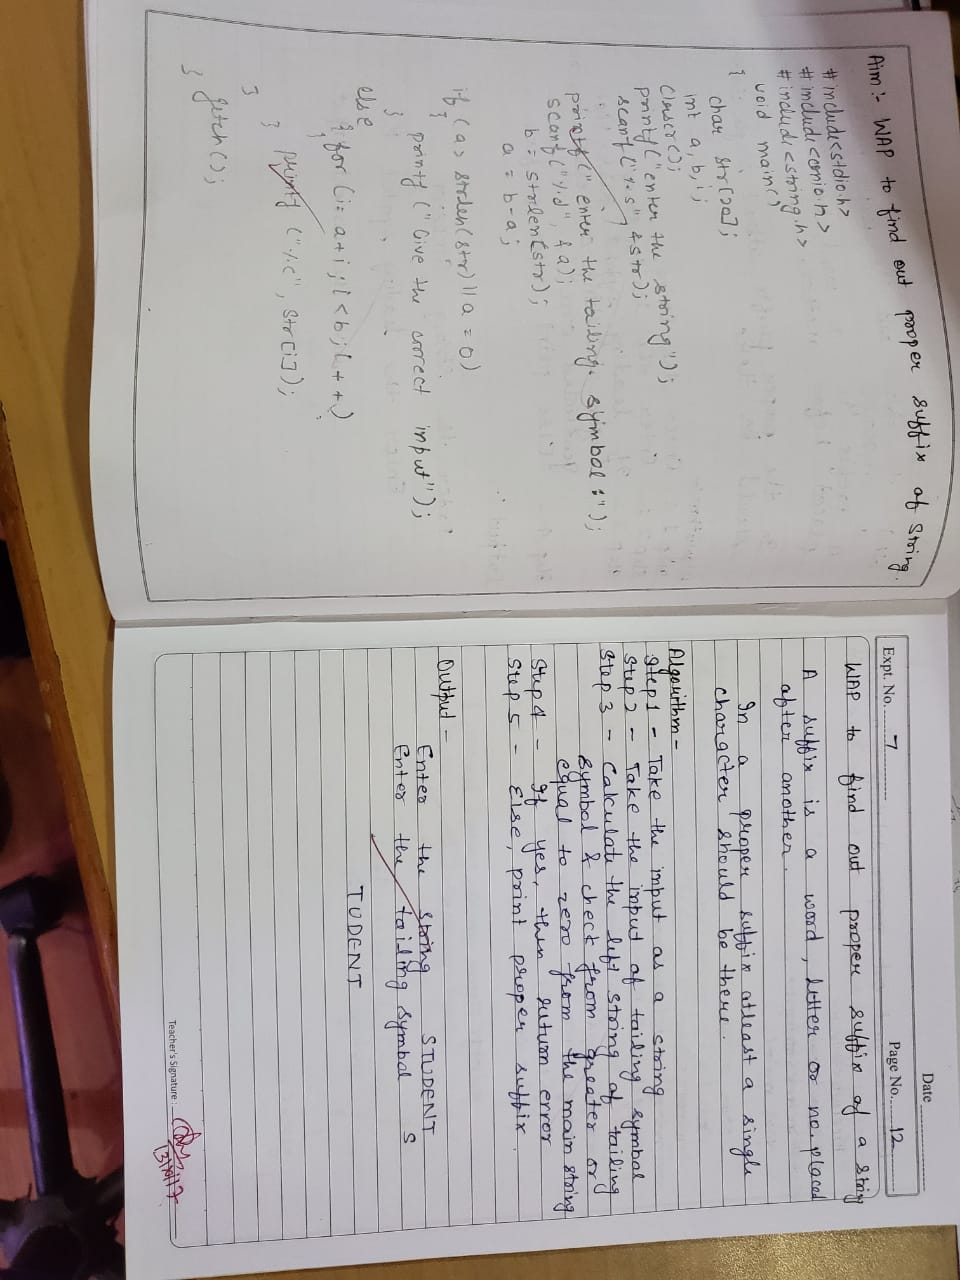 Aim :- WAP to find out proper suffix of String.
#include<stdio.h>
#include<conio.h>
#include<string.h>
void main()
{
char str[20];
int a, b, i;
clrscr();
printf("enter the string");
scanf("%s" &str);
printf("enter the tailing symbol :");
scanf("%d", &a);
b = strlen(str);
a = b-a;
if (a> strlen(str) || a = 0)
{
printf ("Give the correct input");
}
else
{ for (i= a+i; i<b; i++)
{
printf ("%c", str[i]);
}
}
getch();
}
Date
Expt. No. 7
Page No. 12
WAP to find out proper suffix of a string
A suffix is a word, letter or no. placed
after another.
In a proper suffix atleast a single
character should be there.
Algorithm -
Step 1 - Take the input as a string
Step 2 - Take the input of tailing symbol
Step 3 - Calculate the left string of tailing
symbol & check from greater or
equal to zero from the main string
Step 4 - If yes, then return error
Step 5 - Else, print proper suffix.
Output -
Enter the string STUDENT
Enter the tailing symbol S
TUDENT
Teacher's Signature :